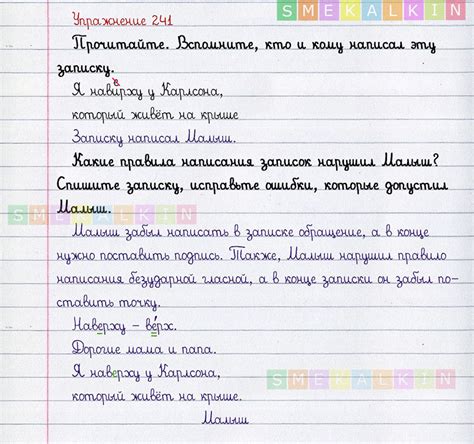 SMEKALKIN
Упражнение 241
Прочитайте. Вспомните, кто и кому написал эту
записку.
Я наверху у Карлсона,
который живёт на крыше
Записку написал Малыш.
Какие правила написания записок нарушил Малыш?
Спишите записку, исправьте ошибки, которые допустил
Малыш.
SMEKALKIN
Малыш забыл написать в записке обращение, а в конце
нужно поставить подпись. Также, Малыш нарушил правило
написания безударной гласной, а в конце записки он забыл по-
ставить точку.
Наверху – верх.
Дорогие мама и папа.
Я наверху у Карлсона,
SMEKALKIN
который живёт на крыше.
Малыш